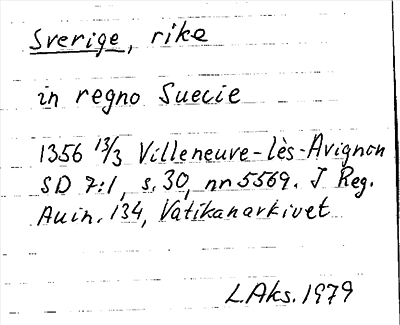 Sverige, rike
in regno Suecie
1356 13/3 Villeneuve-lès-Avignon
SD 7:1, s. 30, nr 5569. I Reg.
Avin. 134, Vatikanarkivet
L.Aks. 1979